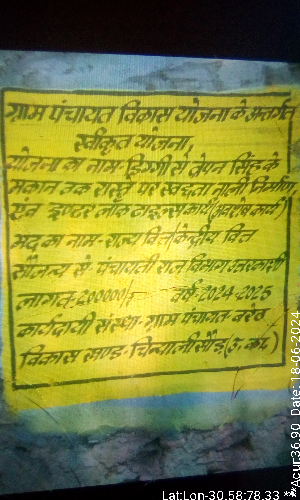 ग्राम पंचायत विकास योजना के अन्तर्गत
स्वीकृत योजना,
योजना का नाम- डिग्गी से त्रेपन सिंह के
मकान तक रास्ते पर स्वच्छता नाली निर्माण
एंव इण्टर लॉक टाइल्स कार्य (अवशेष कार्य)
मद का नाम- राज्य वित्त/केन्द्रीय वित्त
सौजन्य से- पंचायती राज विभाग उत्तरकाशी
लागत- 200000/- वर्ष- 2024-2025
कार्यदायी संस्था- ग्राम पंचायत-
विकास खण्ड- चिन्यालीसौड़ (उ.का.)
Lat:Lon-30.58:78.33 **Acur36.90 Date: 18-06-2024